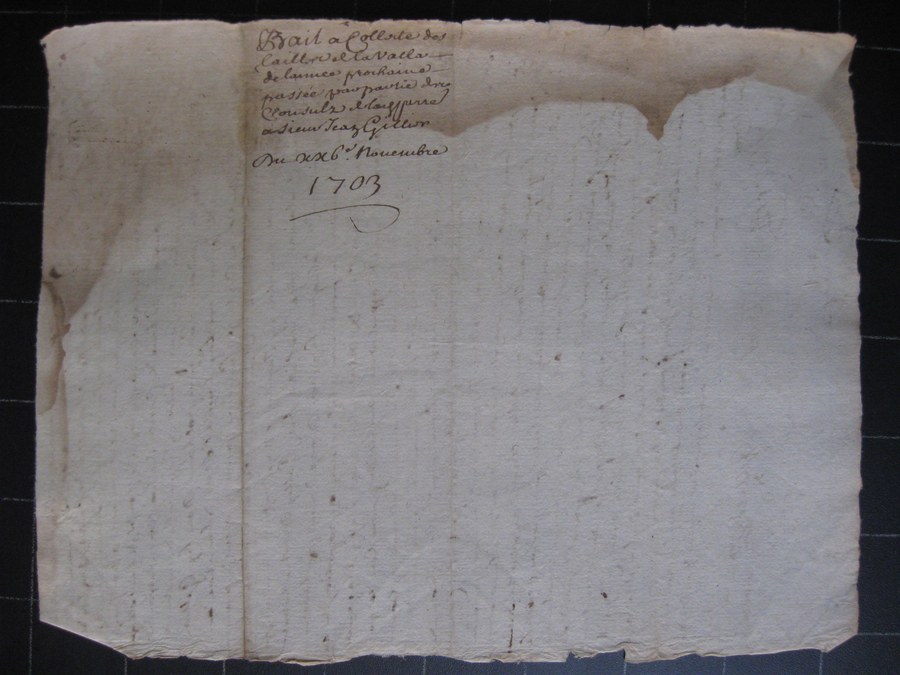 Bail a Collecte des
taillhes de la Valla
de lannee prochaine
passée par partie des
Consulz de
a Sieur Jean Gillier
Du xx6e. Novembre
1703